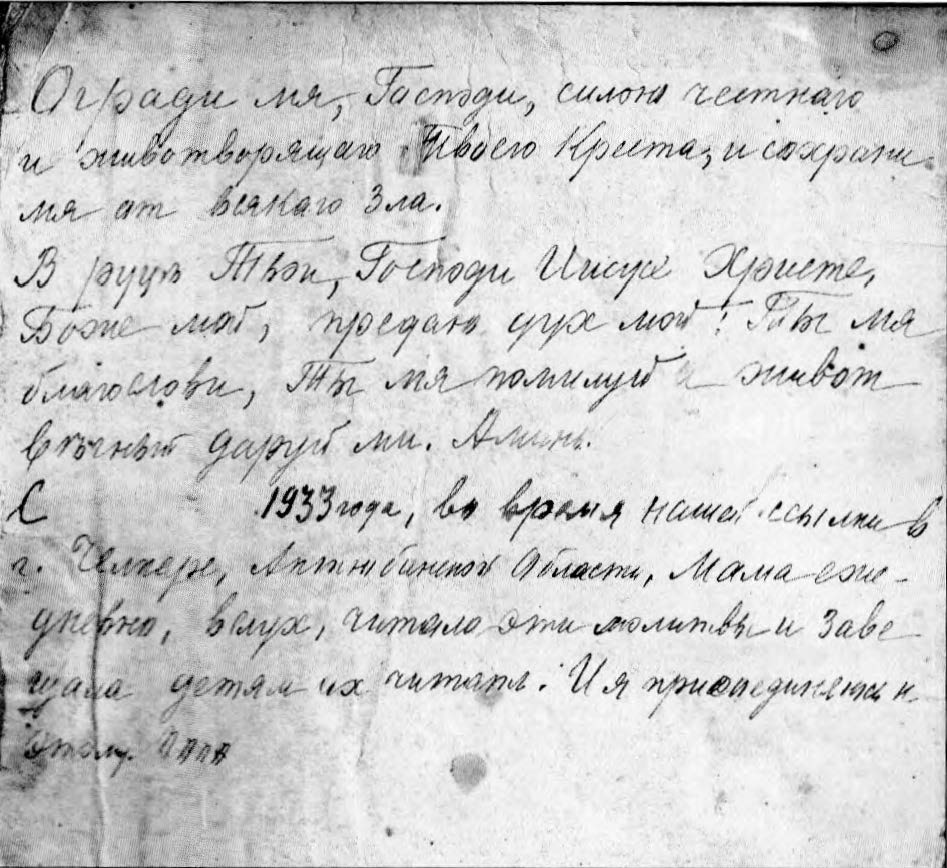 Огради мя, Господи, силою честнаго
и животворящаго Твоего Креста, и сохрани
мя от всякаго Зла.
В руцѣ Твои, Господи Иисусе Христе,
Боже мой, предаю дух мой: Ты мя
благослови, Ты мя помилуй и живот
вѣчный даруй ми. Аминь.
С 1933 года, во время нашей ссылки в
г. Челкаре, Актюбинской Области, Мама еже-
дневно, вслух, читала эти молитвы и Заве
щала детям их читать. И я присоединяюсь к
этому. Папа